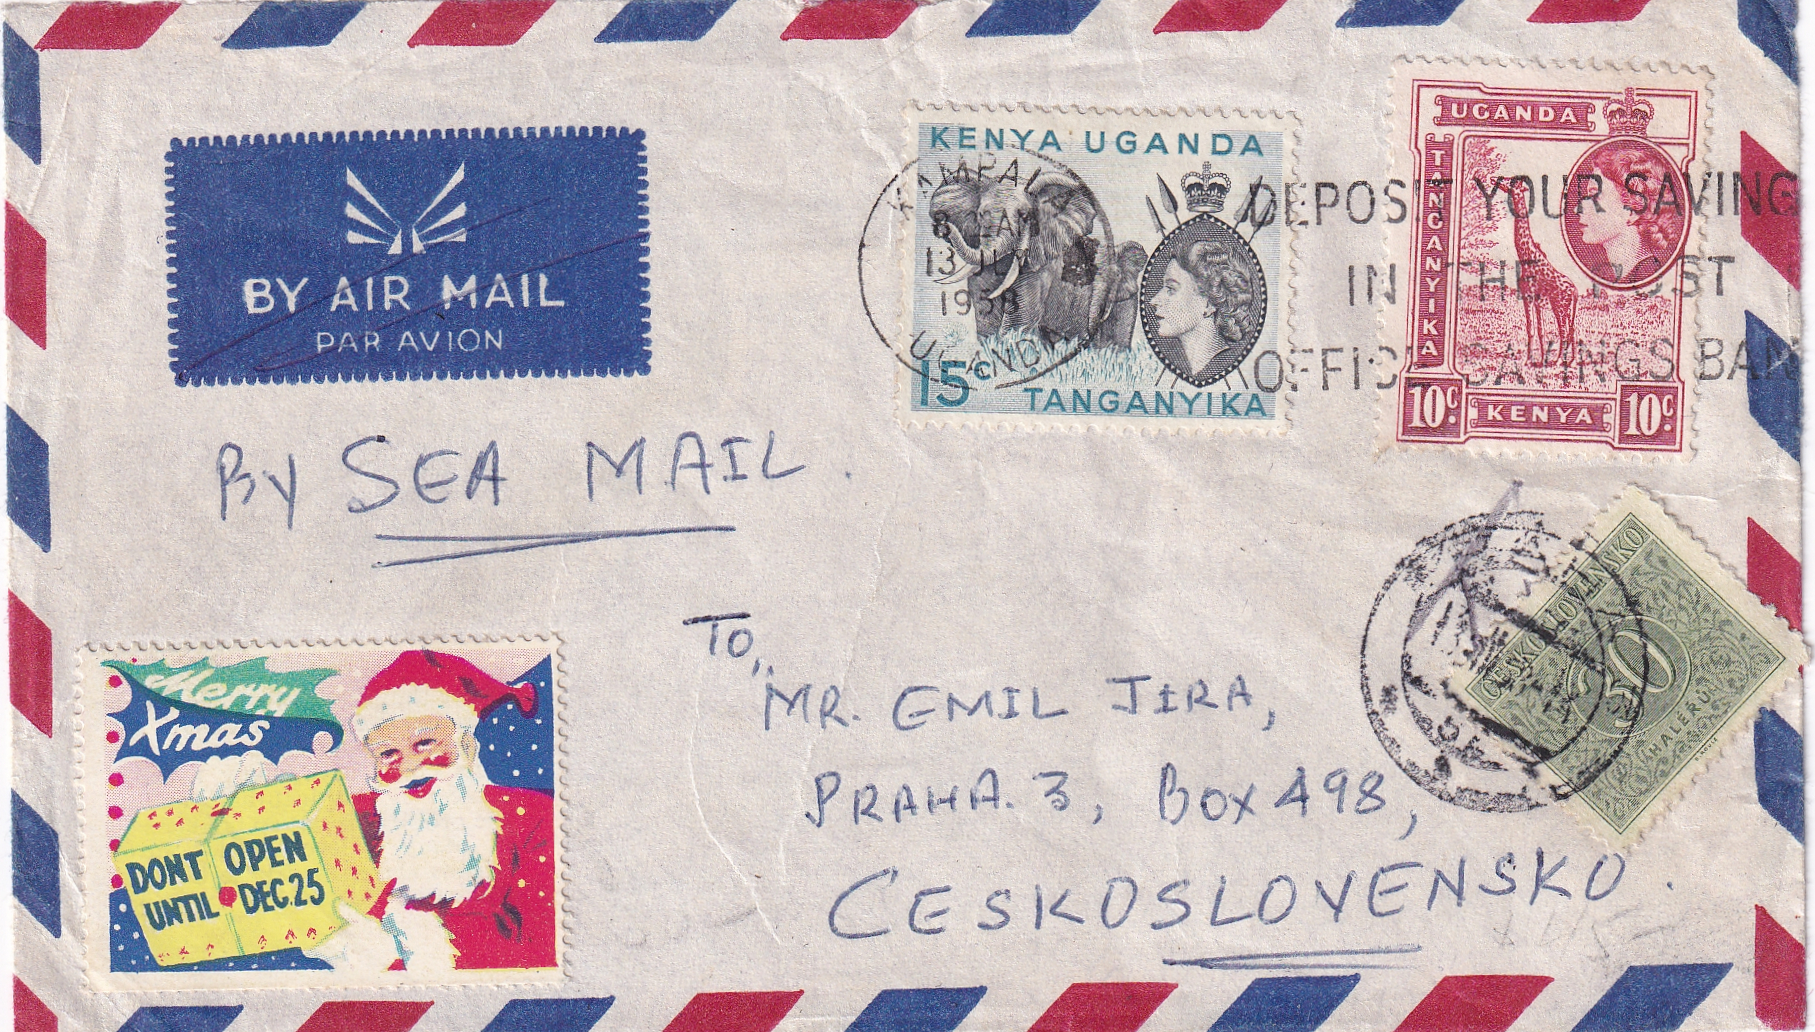 BY AIR MAIL
PAR AVION
KENYA UGANDA
15c
TANGANYIKA
KAMPALA
8 22AM
13 JLY
1958
UGANDA
UGANDA
TANGANYIKA
10C.
KENYA
10C.
DEPOSIT YOUR SAVING
IN THE POST
OFFICE SAVINGS BAN
By SEA MAIL.
ČESKOSLOVENSKO
50
HALÉŘŮ
Merry
Xmas
DONT OPEN
UNTIL DEC.25
To,
MR. EMIL JIRA,
PRAHA. 3, BOX 498,
CESKOSLOVENSKO.